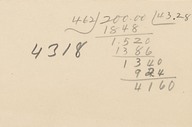 462)200.00(43.28
1848
1520
1386
1340
924
4160
4318